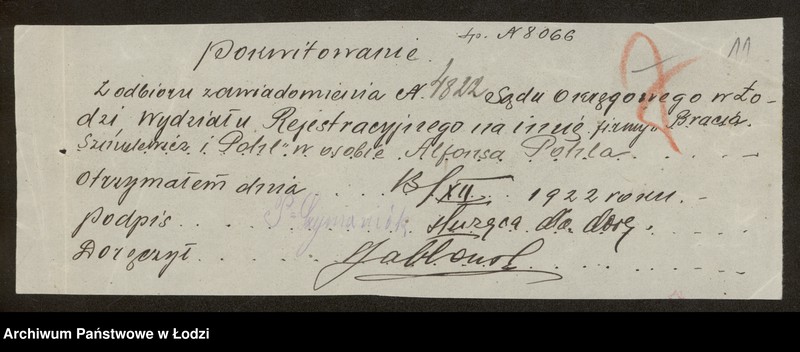 Ɫp. N 8066
11
Pokwitowanie.
Z odbioru zawiadomienia N. 4822 Sądu Okręgowego w Ło-
dzi Wydziału Rejestracyjnego na imię firmy „Bracia
Szmulewicz i Pohl" w osobie Alfonsa Pohla
Otrzymałem dnia 13/XII 1922 roku. -
podpis służąca dla dorę.
Doręczył
Archiwum Państwowe w Łodzi